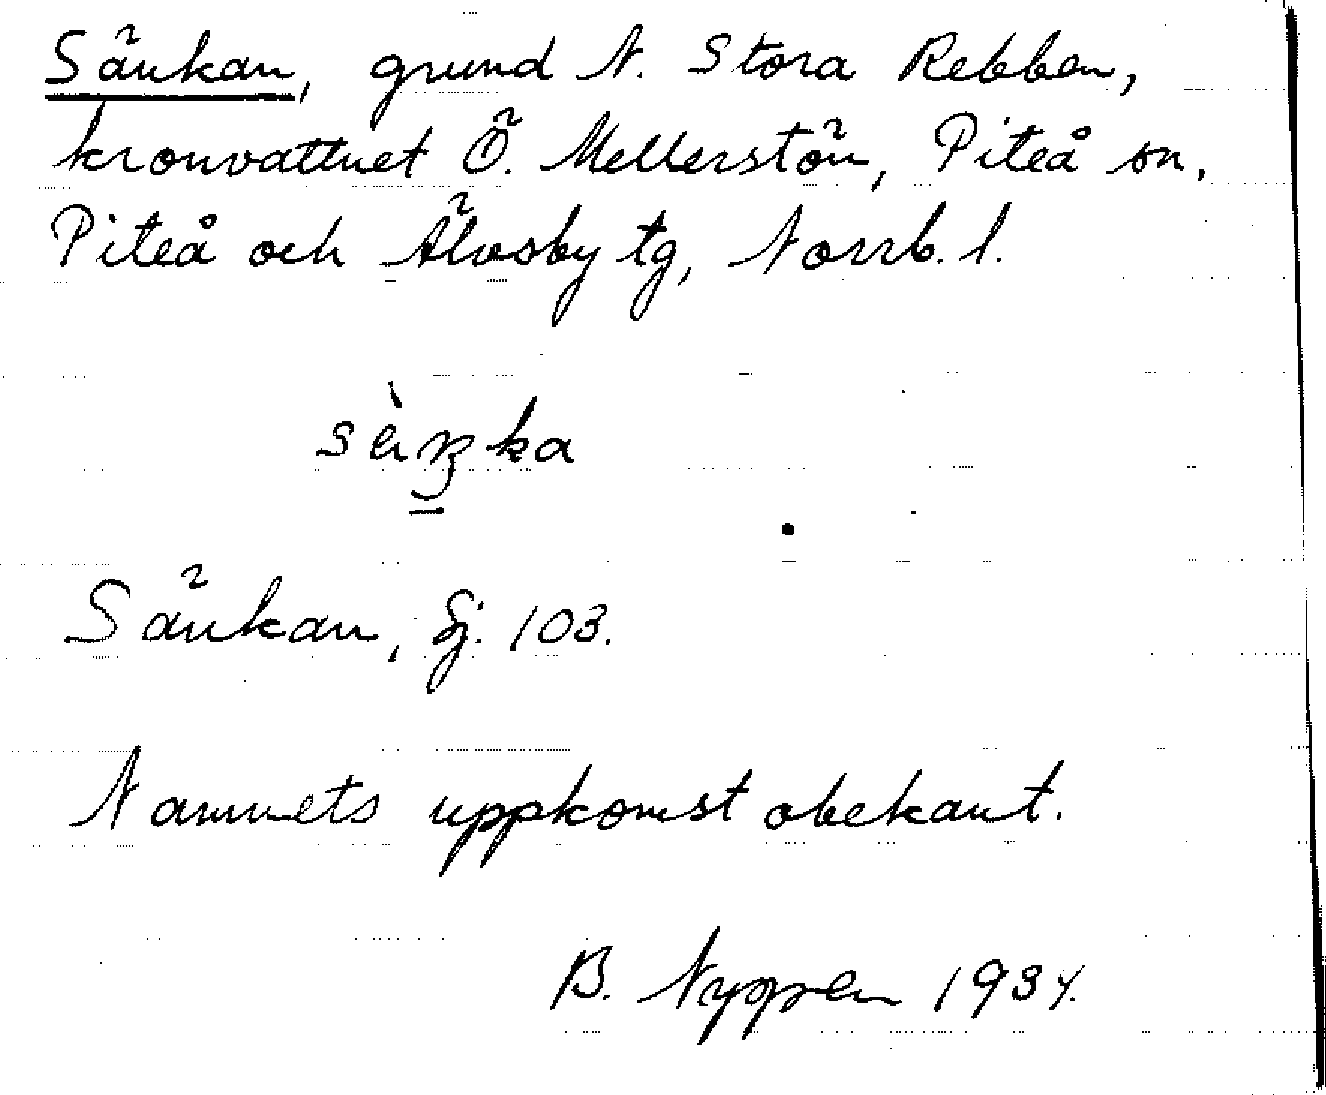 Sänkan, grund N. Stora Rebben,
kronvattnet Ö. Mellerstön, Piteå sn,
Piteå och Älvsby tg, Norrb. l.
Sänkan, Sj. 103.
Namnets uppkomst obekant.
B. 1934.